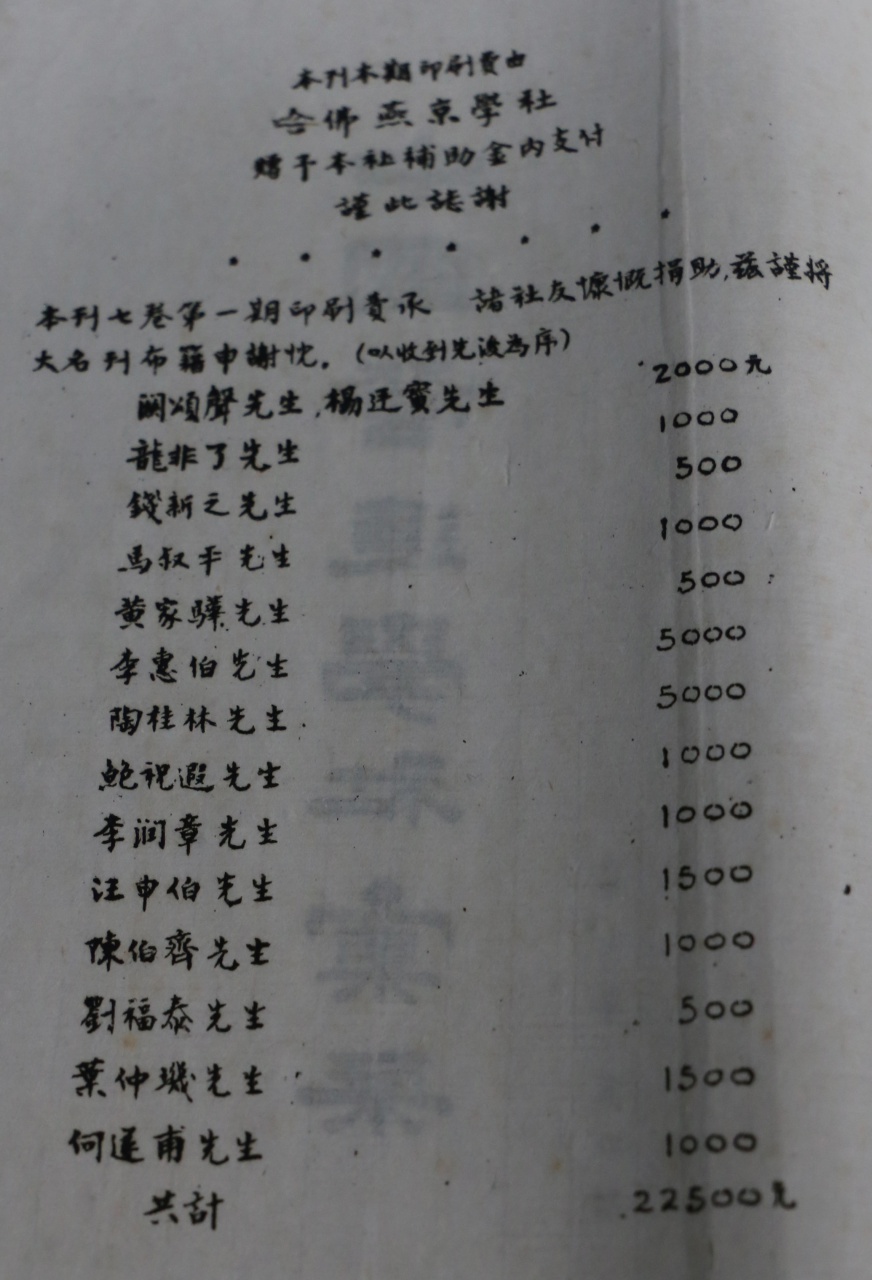 本刊本期印刷費由
哈佛燕京學社
贈予本社補助金內支付
謹此誌謝
本刊七卷第一期印刷費承 諸社友慷慨捐助,茲謹將
大名列布藉申謝忱。(以收到先後為序)
關頌聲先生,楊廷寶先生 2000元
龍非了先生 1000
錢新之先生 500
馬叔平先生 1000
黃家驊先生 500
李惠伯先生 5000
陶桂林先生 5000
鮑祝遐先生 1000
李潤章先生 1000
汪申伯先生 1500
陳伯齊先生 1000
劉福泰先生 500
葉仲璣先生 1500
何遂甫先生 1000
共計 22500元